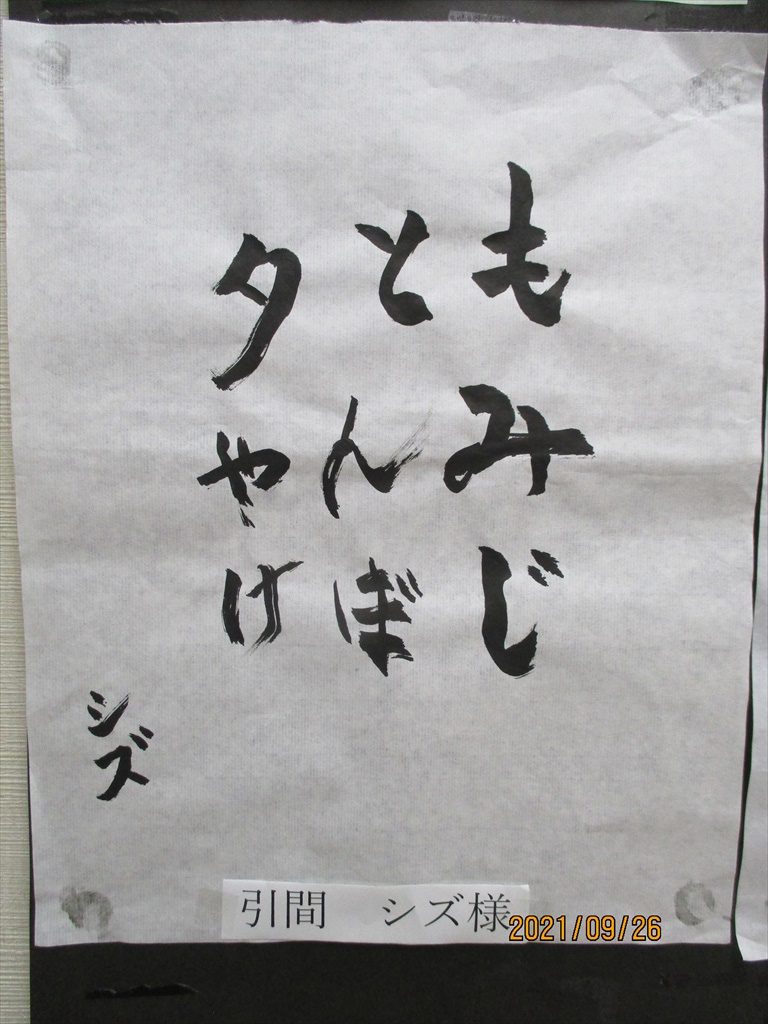 もみじ
とんぼ
夕やけ
シズ
引間 シズ様
2021/09/26